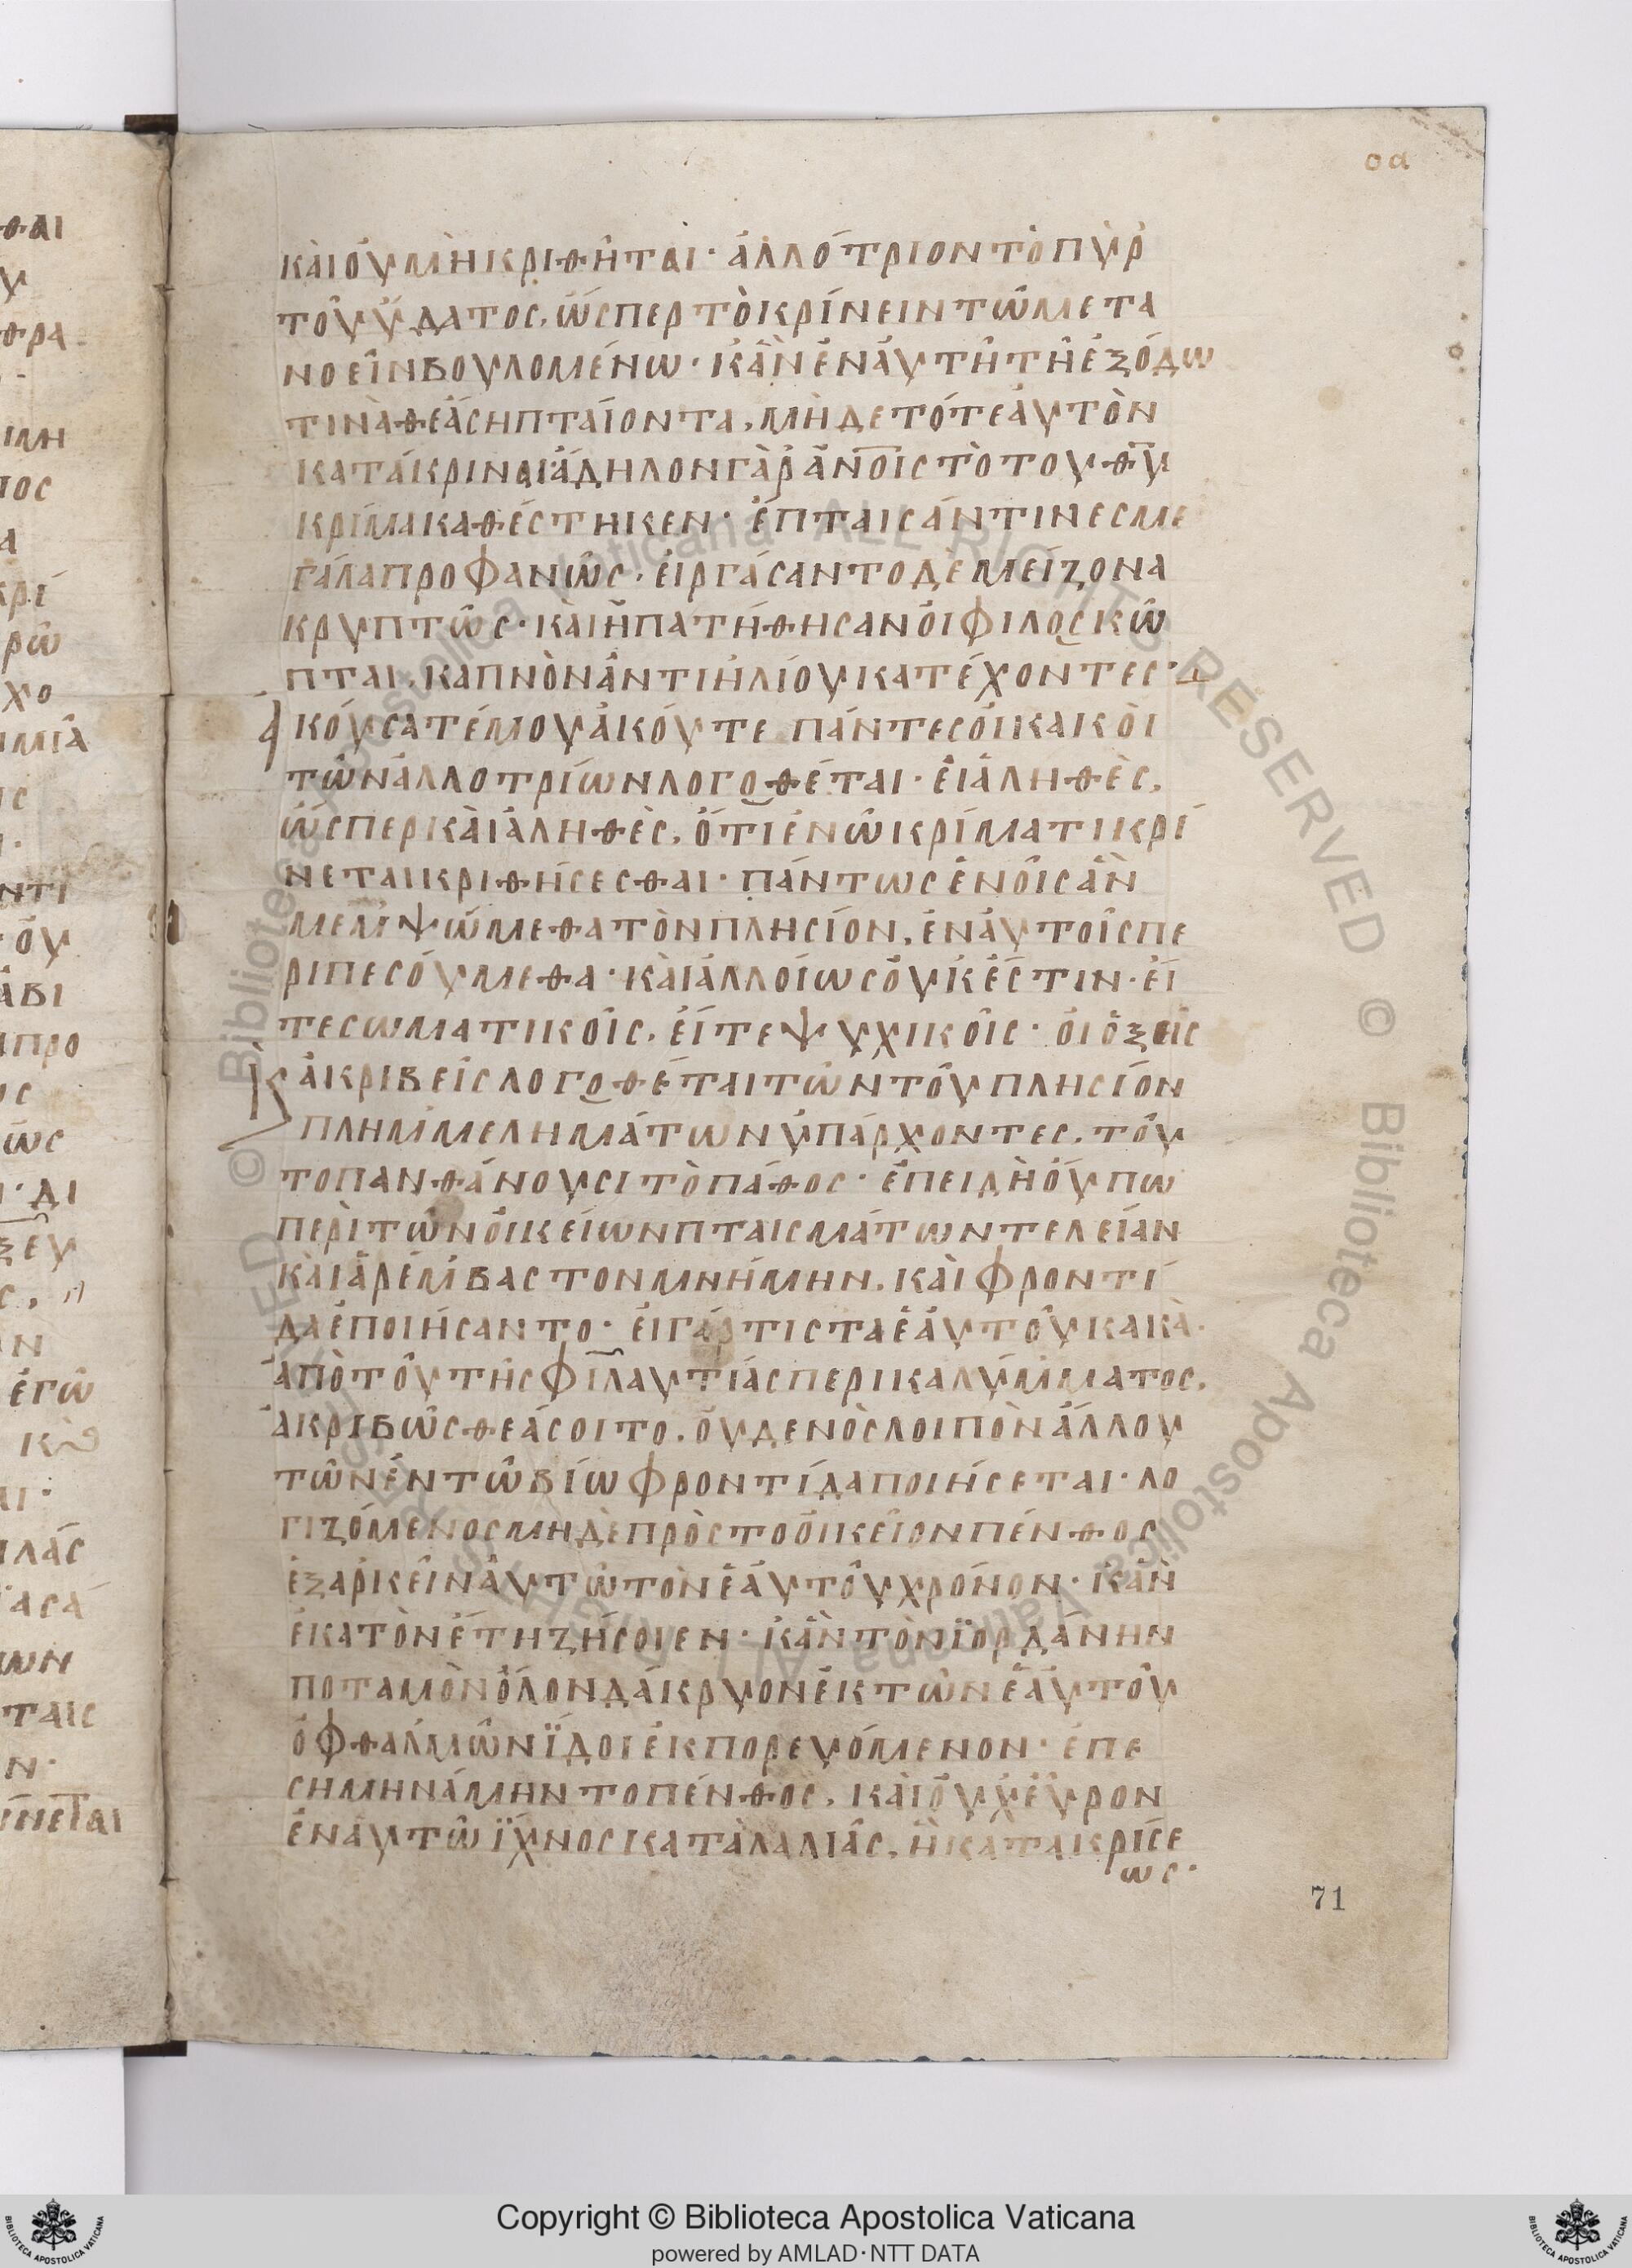 οα
καὶ οὐ μὴ κριθῆται· ἀλλότριον τὸ πῦρ
τοῦ ὕδατος, ὥσπερ τὸ κρίνειν τῶ μετα
νοεῖν βουλομένω· κἂν ἐν αὐτῆ τῆ ἐξόδω
τινὰ θεάση πταίοντα, μὴ δε τότε αὐτὸν
κατάκριναι ἄδηλον γὰρ ἀνοις τὸ του θυ
κρίμα καθέστηκεν· ἔπταισάν τινες με
γάλα προφανῶς· εἰργάσαντο δὲ μείζονα
κρυπτῶς· καὶ ἠπατήθησαν οἱ φιλοσκῶ
πται, καπνὸν ἀντι ἡλίου κατέχοντες·
ἀκούσατέ μου ἀκούτε πάντες οἱ κακοὶ
τῶν ἀλλοτρίων λογοθέται· εἰ ἀληθὲς,
ὥσπερ καὶ ἀληθὲς, ὅτι ἐν ὧ κρίματι κρί
νεται κριθήσεσθαι· πάντως ἐν οἷς ἂν
μεμψώμεθα τὸν πλησίον, ἐν αὐτοῖς πε
ριπεσούμεθα· καὶ ἀλλοίως οὐκ ἔστιν· εἴ
τε σωματικοῖς, εἴτε ψυχικοῖς· οἱ ὀξεῖς
κ ἀκριβεῖς λογοθέται τῶν τοῦ πλησίον
πλημμελημάτων ὑπάρχοντες, τοῦ
το πανθάνουσι τὸ πάθος· ἐπειδὴ οὔπω
περὶ τῶν οἰκείων πταισμάτων τελείαν
καὶ ἀρέμβαστον μνήμην, καὶ φροντί
δα ἐποιήσαντο· εἰ γάρ τις τα ἑαυτοῦ κακὰ·
ἀπὸ τοῦ τῆς φιλαυτίας περικαλύμματος,
ἀκριβῶς θεάσοιτο, οὐδενὸς λοιπὸν ἄλλου
τῶν ἐν τῶ βίω φροντίδα ποιήσεται· λο
γιζόμενος μηδὲ πρὸς το οἰκεῖον πένθος
ἐξαρκεῖν αὐτῶ τὸν ἑαυτοῦ χρόνον· κἂν
ἑκατὸν ἔτη ζήσοιεν· κἂν τὸν ϊορδάνην
ποταμὸν ὅλον δάκρυον ἐκ τῶν ἑαυτοῦ
ὀφθαλμῶν ϊδοι ἐκπορευόμενον· ἐπε
σημηνάμην το πένθος, καὶ οὐχ εὗρον
ἐν αὐτῶ ϊχνος καταλαλιᾶς, ἢ κατακρίσε
ως·
71
Copyright © Biblioteca Apostolica Vaticana
powered by AMLAD·NTT DATA